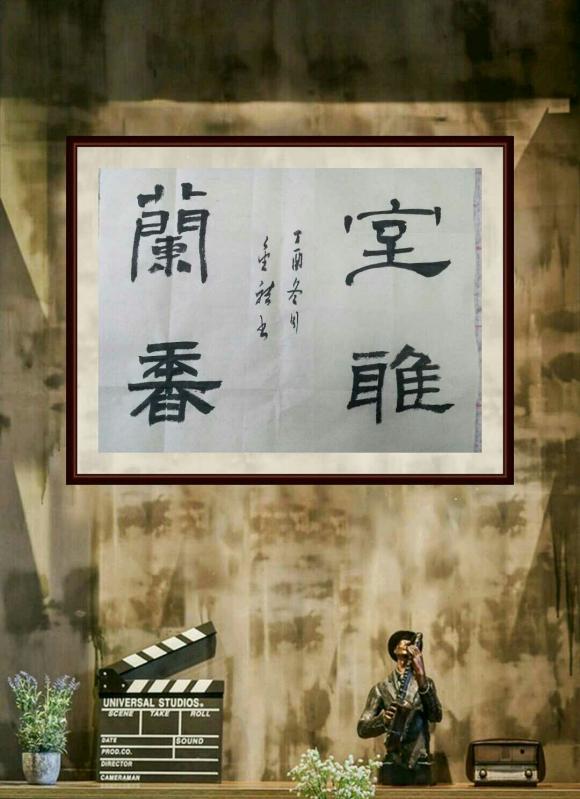 室雅
丁酉冬月
蘭香
UNIVERSAL STUDIOS®
SCENE TAKE ROLL
DATE SOUND
PROD.CO.
DIRECTOR
CAMERAMAN